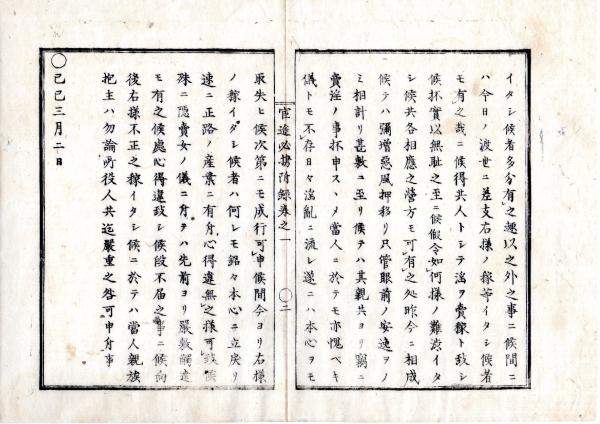 イタシ候者多分有之趣以之外之事ニ候間ニ
ハ今日ノ渡世ニ差支右様ノ稼等イタシ候者
モ有之哉ニ候得共人トシテ淫ヲ賣稼ト致シ
候抔實以無恥之至ニ候假令如何様ノ難渋イタ
シ候共各相應之營方モ可有之処昨今ニ相成
候テハ彌増惡風押移リ只管眼前ノ安逸ヲノ
ミ相計リ甚敷ニ至リ候テハ其親共ヨリ竊ニ
賣淫ノ事抔申スヽメ當人ニ於テモ亦愧ベキ
儀トモ不存日々淫亂ニ流レ遂ニハ本心ヲモ
官途必携附録巻之一
〇二
取失ヒ候次第ニモ成行可申候間今ヨリ右様
ノ稼イタシ候者ハ何レモ銘々本心ニ立戻リ
速ニ正路ノ産業ニ有付心得違無之様可致候
殊ニ隠賣女ノ儀ニ付テハ先前ヨリ嚴敷觸達
モ有之候處心得違致シ候段不届之事ニ候向
後右様不正之稼イタシ候ニ於テハ當人親族
抱主ハ勿論町役人共迄嚴重之咎可申付事
〇己巳三月二日